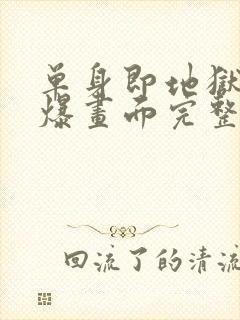 单身即地獄
爆畫而完整
回流了的清流